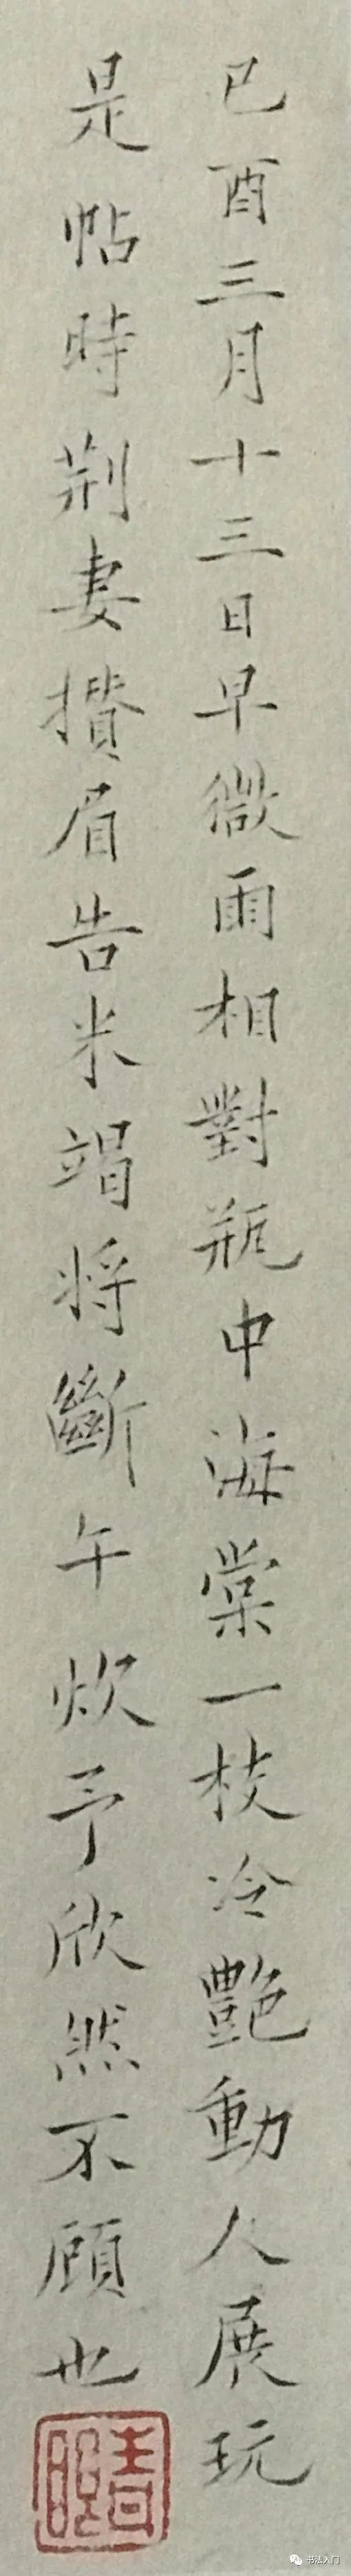 己酉三月十三日早微雨相對瓶中海棠一枝冷艷動人展玩
是帖時荆妻攢眉告米竭将斷午炊予欣然不顧也
書法入门